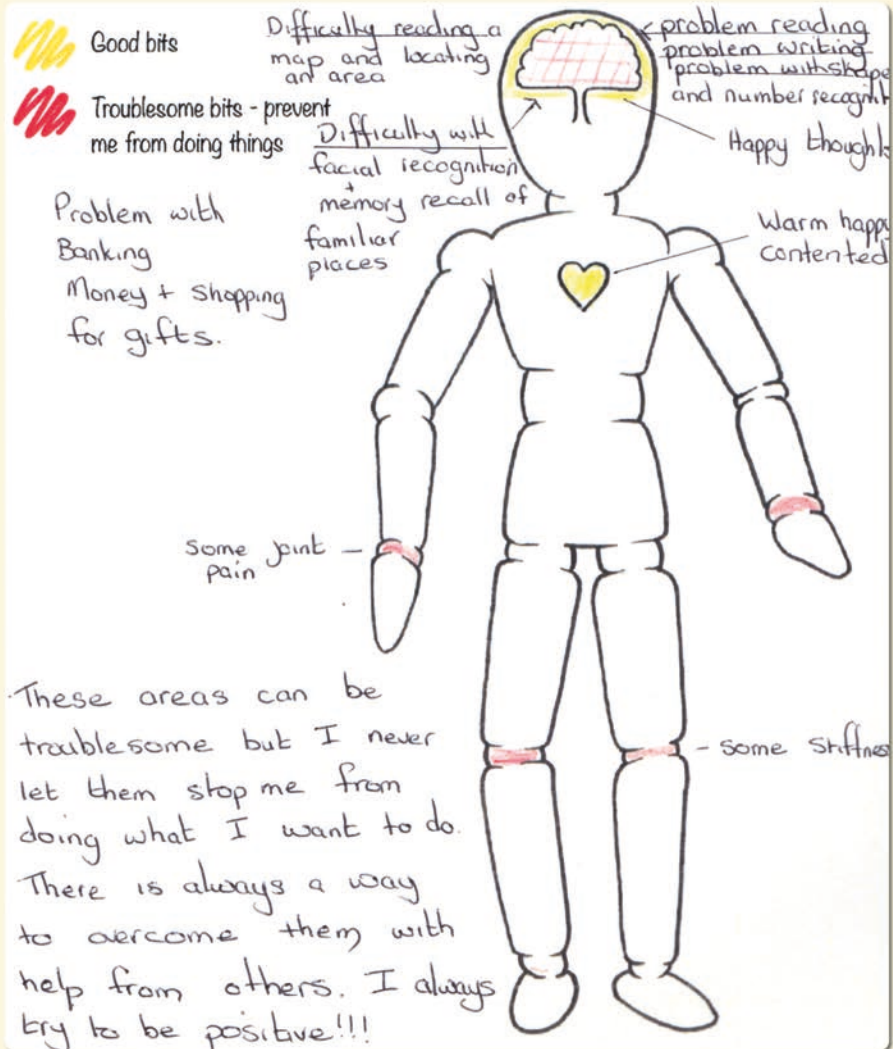 Good bits
Troublesome bits - prevent
me from doing things
Difficulty reading a
map and locating
an area
problem reading
problem writing
problem with shape
and number recognit
Difficulty with
facial recognition
+
memory recall of
familiar
places
Happy thought
Problem with
Banking
Money + Shopping
for gifts.
Warm happy
contented
some joint
pain
some stiffnes
These areas can be
troublesome but I never
let them stop me from
doing what I want to do.
There is always a way
to overcome them with
help from others. I always
try to be positive!!!